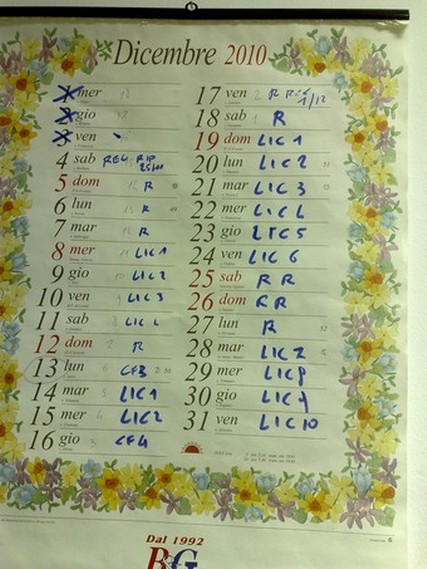 Dicembre 2010
1 mer 18
2 gio 17
3 ven
4 sab REC. RIP 25/11
5 dom 14 R
6 lun 13 R
7 mar 12 R
8 mer 11 LIC 1
9 gio 10 LIC 2
10 ven 9 LIC 3
11 sab 8 LIC 4
12 dom R
13 lun 6 CF3
14 mar 5 LIC 1
15 mer 4 LIC 2
16 gio 3 CF4
17 ven 2 R REC 1/12
18 sab 1 R
19 dom LIC 1
20 lun LIC 2 51
21 mar LIC 3
22 mer LIC 4
23 gio LIC 5
24 ven LIC 6
25 sab R R
26 dom R R
27 lun R 52
28 mar LIC 7
29 mer LIC 8
30 gio LIC 9
31 ven LIC 10
6
Dal 1992
B&G